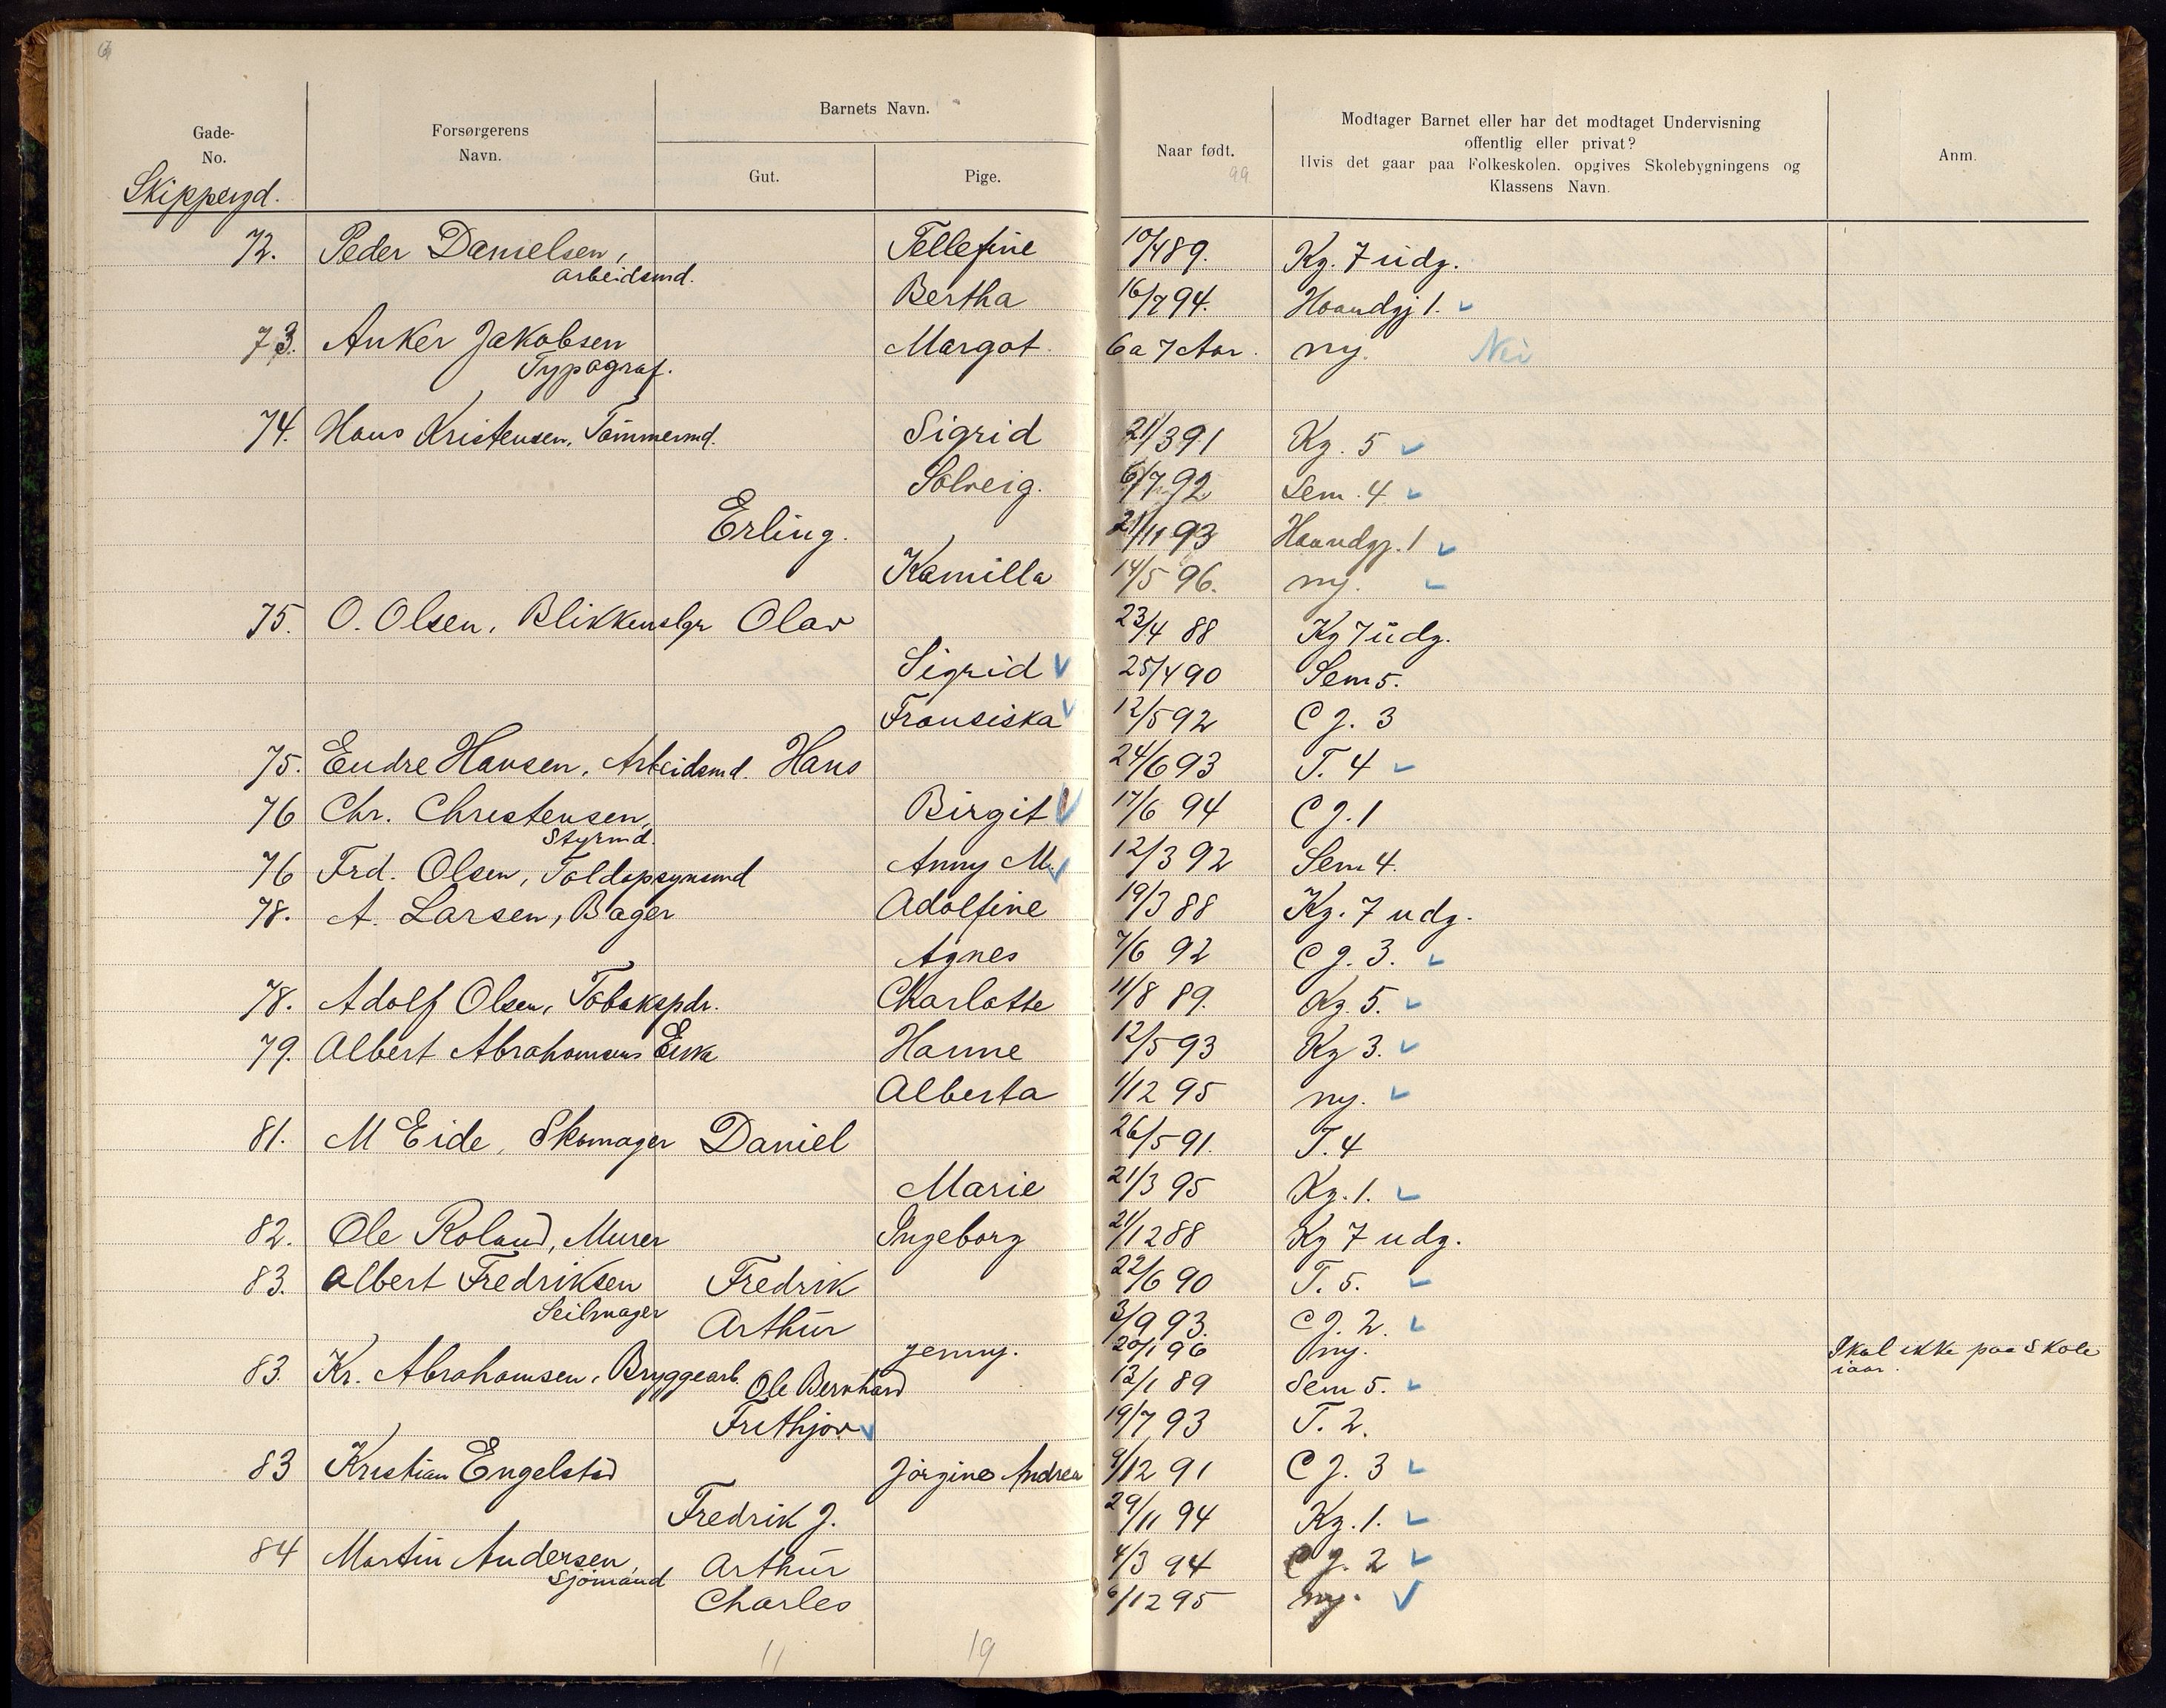 Gade-No. Forsørgerens Navn. Barnets Navn. Gut. Pige. Naar født. 99 Modtager Barnet eller har det modtaget Undervisning offentlig eller privat? Hvis det gaar paa Folkeskolen, opgives Skolebygningens og Klassens Navn. Anm.
Skippergd.
72. Peder Danielsen, Arbeidsmd. Tellefine 10/4 89. Kg. 7 udg.
Bertha 16/7 94. Haandgj 1.
73. Anker Jakobsen Typograf. Margot. 6 a 7 Aar. ny. Nei
74. Hans Kristensen, Tömmermd. Sigrid 21/3 91 Kg. 5
Solveig. 6/7 92 Sem. 4
Erling. 21/11 93 Haandgj. 1
Kamilla 14/5 96. ny.
75. O. Olsen, Blikkenslgr Olav 23/4 88 Kg 7 udg.
Sigrid 25/4 90 Sem 5.
Fransiska 12/5 92 C J. 3
75. Endre Hansen, Arbeidsmd. Hans 24/6 93 T. 4
76 Chr. Christensen, Styrmd. Birgit 17/6 94 C J. 1
76 Frd. Olsen, Toldopsynsmd Anny M. 12/3 92 Sem 4.
78. A. Larsen, Bager Adolfine 19/3 88 Kg. 7 udg.
Agnes 7/6 92 C J. 3.
78. Adolf Olsen, Tobakspdr. Charlotte 11/8 89. Kg. 5.
79. Albert Abrahamsens Enke Hanne 12/5 93 Kg 3.
Alberta 1/12 95 ny.
81. M Eide, Skomager Daniel 26/5 91. T. 4
Marie 21/3 95 Kg. 1.
82. Ole Roland, Murer Ingeborg 21/12 88 Kg 7 udg.
83. Albert Fredriksen Seilmager Fredrik 22/6 90 T. 5.
Arthur 3/9 93. C J. 2.
Jenny. 20/1 96 ny. Skal ikke paa Skole iaar.
83. Kr. Abrahamsen, Bryggearb. Ole Bernhard 12/1 89 Sem 5.
Frithjov 19/7 93 T. 2.
83 Kristian Engelstad Jørgine Andrea 9/12 91 C J. 3
Fredrik J. 29/11 94 Kg. 1.
84 Martin Andersen, Sjömand Arthur 4/3 94 C J. 2
Charles 6/12 95 ny.
11 19